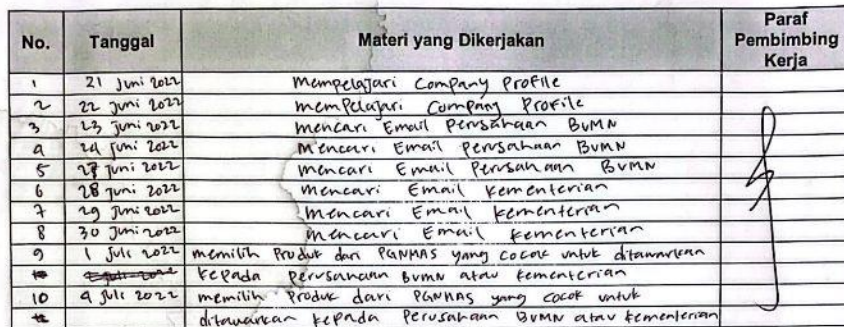 No. Tanggal Materi yang Dikerjakan Paraf Pembimbing Kerja
1 21 Juni 2022 Mempelajari Company Profile
2 22 Juni 2022 mempelajari Company Profile
3 23 Juni 2022 mencari Email Perusahaan BUMN
4 24 Juni 2022 Mencari Email Perusahaan BUMN
5 27 Juni 2022 mencari Email Perusahaan BUMN
6 28 Juni 2022 mencari Email Kementerian
7 29 Juni 2022 Mencari Email Kementerian
8 30 Juni 2022 mencari Email Kementerian
9 1 Juli 2022 memilih Produk dari PGNMAS yang cocok untuk ditawarkan
kepada Perusahaan BUMN atau Kementerian
10 4 Juli 2022 memilih Produk dari PGNMAS yang cocok untuk
ditawarkan kepada Perusahaan BUMN atau Kementerian